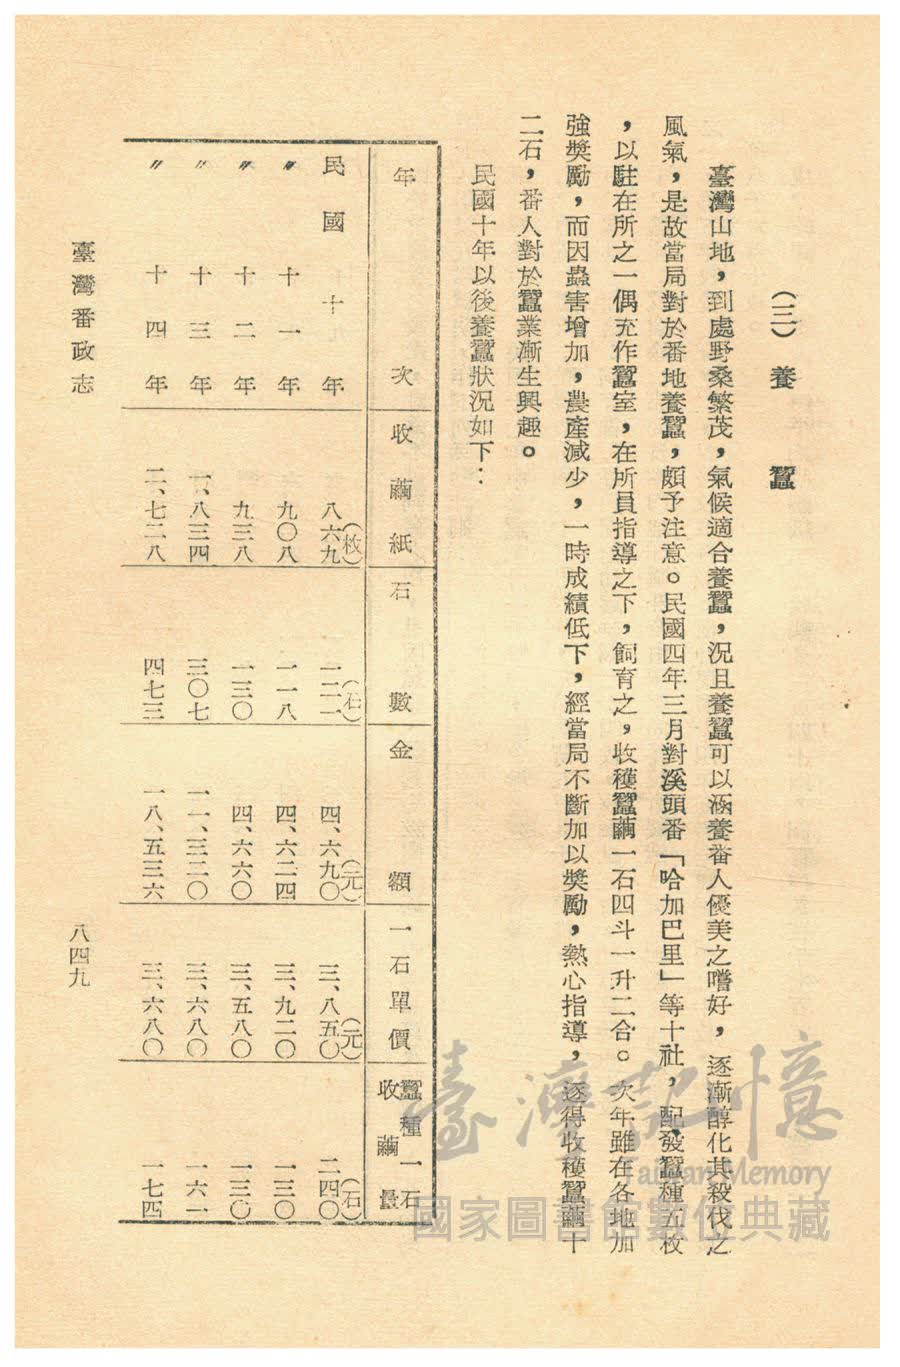 (三) 養蠶
臺灣山地，到處野桑繁茂，氣候適合養蠶，況且養蠶可以涵養番人優美之嗜好，逐漸醇化其殺伐之
風氣，是故當局對於番地養蠶，頗予注意。民國四年三月對溪頭番「哈加巴里」等十社，配發蠶種五枚
，以駐在所之一偶充作蠶室，在所員指導之下，飼育之，收穫蠶繭一石四斗一升二合。次年雖在各地加
強獎勵，而因蟲害增加，農產減少，一時成績低下，經當局不斷加以獎勵，熱心指導，逐得收穫蠶繭十
二石，番人對於蠶業漸生興趣。
民國十年以後養蠶狀況如下：
年次 收繭紙 石數 金額 一石單價 蠶種一石收繭量
民國十年 八六九(枚) 一二一(石) 四、六九〇(元) 三、八五〇(元) 二四〇(石)
〃十一年 九〇八 一一八 四、六二四 三、九二〇 一三〇
〃十二年 九三八 一三〇 四、六六〇 三、五八〇 一三〇
〃十三年 一、八三四 三〇七 一一、三二〇 三、六八〇 一六一
〃十四年 二、七二八 四七三 一八、五三六 三、六八〇 一七四
臺灣番政志
八四九
臺灣記憶
Taiwan Memory
國家圖書館數位典藏